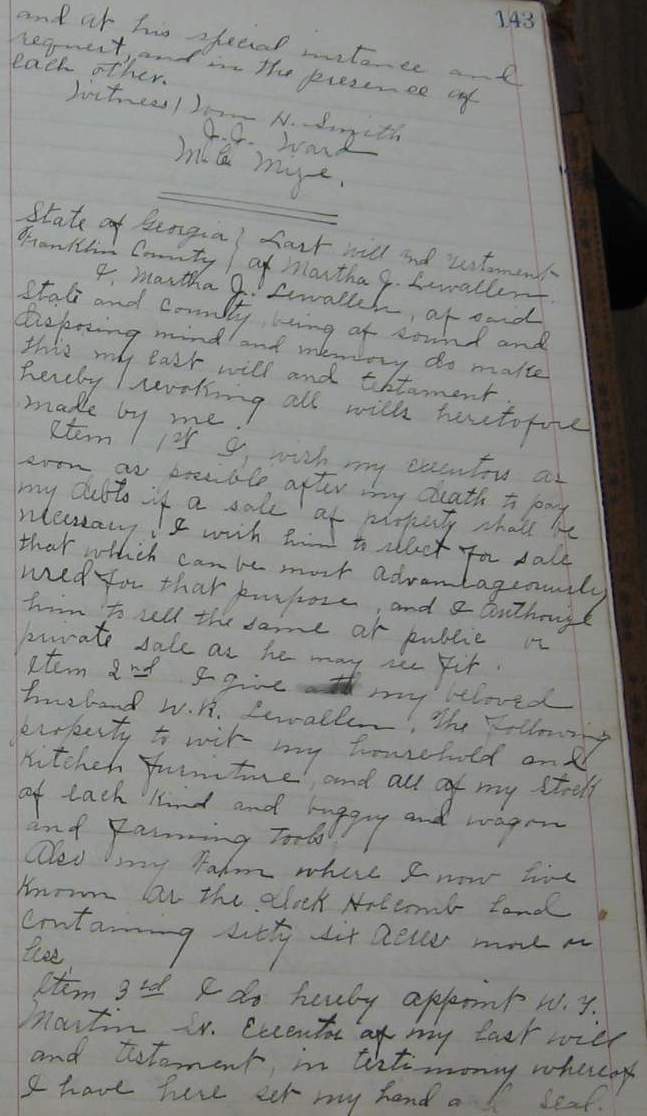 143
and at his special instance and
request, and in the presence of
each other.
Witness Tom H. Smith
J.J. Ward
M.C. Mize.
State of Georgia } Last will and testament
Franklin County } of Martha J. Lewallen.
I, Martha J. Lewallen, of said
State and County, being of sound and
disposing mind and memory do make
this my last will and testament
hereby revoking all wills heretofore
made by me.
Item 1st I, wish my executors as
soon as possible after my death to pay
my debts if a sale of property shall be
necessary, I wish him to select for sale
that which can be most advantageously
used for that purpose, and I authorize
him to sell the same at public or
private sale as he may see fit.
Item 2nd I give my beloved
husband W.R. Lewallen, the following
property to wit my household and
kitchen furniture, and all of my stock
of each kind and buggy and wagon
and farming tools
Also my Farm where I now live
known as the Holcomb land
containing sixty six acres more or
less,
Item 3rd I do hereby appoint W.Y.
Martin Sr. Executor of my last will
and testament, in testimony whereof
I have here set my hand and seal